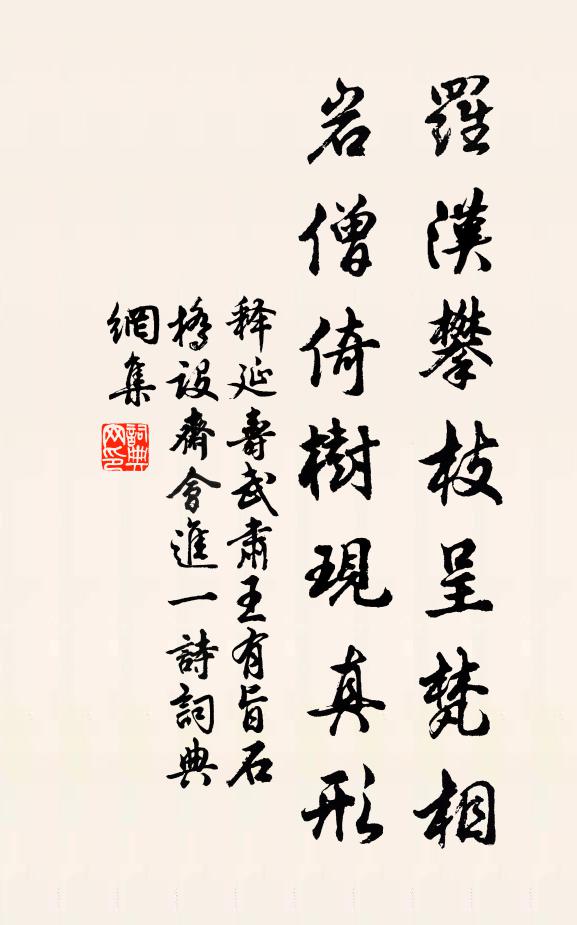 羅漢攀枝呈梵相
岩僧倚樹現真形
释延壽武肅王有旨石
橋设齋會進一詩詞典
網集
詞典
网